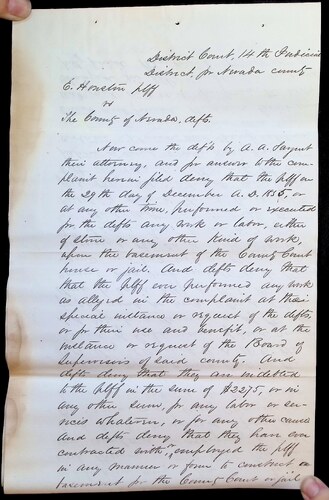 District Court, 14th Judicial
District, for Nevada county
E. Houston plff
vs
The County of Nevada, defts.
Now come the defts by A. A. Sargent
their attorney, and for answer to the com-
plaint herein filed deny that the plff on
the 29th day of December A.D. 1855, or
at any other time, performed or executed
for the defts any work or labor, either
of stone or any other kind of work,
upon the basement of the County Court
house or jail. And defts deny that
that the plff ever performed any work
as alleged in the complaint at their
special instance or request of the defts
or for their use and benefit, or at the
instance or request of the Board of
Supervisors of said county. And
defts deny that they are indebted
to the plff in the sum of $2275, or in
any other sum, for any labor or ser-
vices whatever, or for any other cause
And defts deny that they have ever
contracted with, employed the plff
in any manner or form to construct a
basement for the County Court or jail